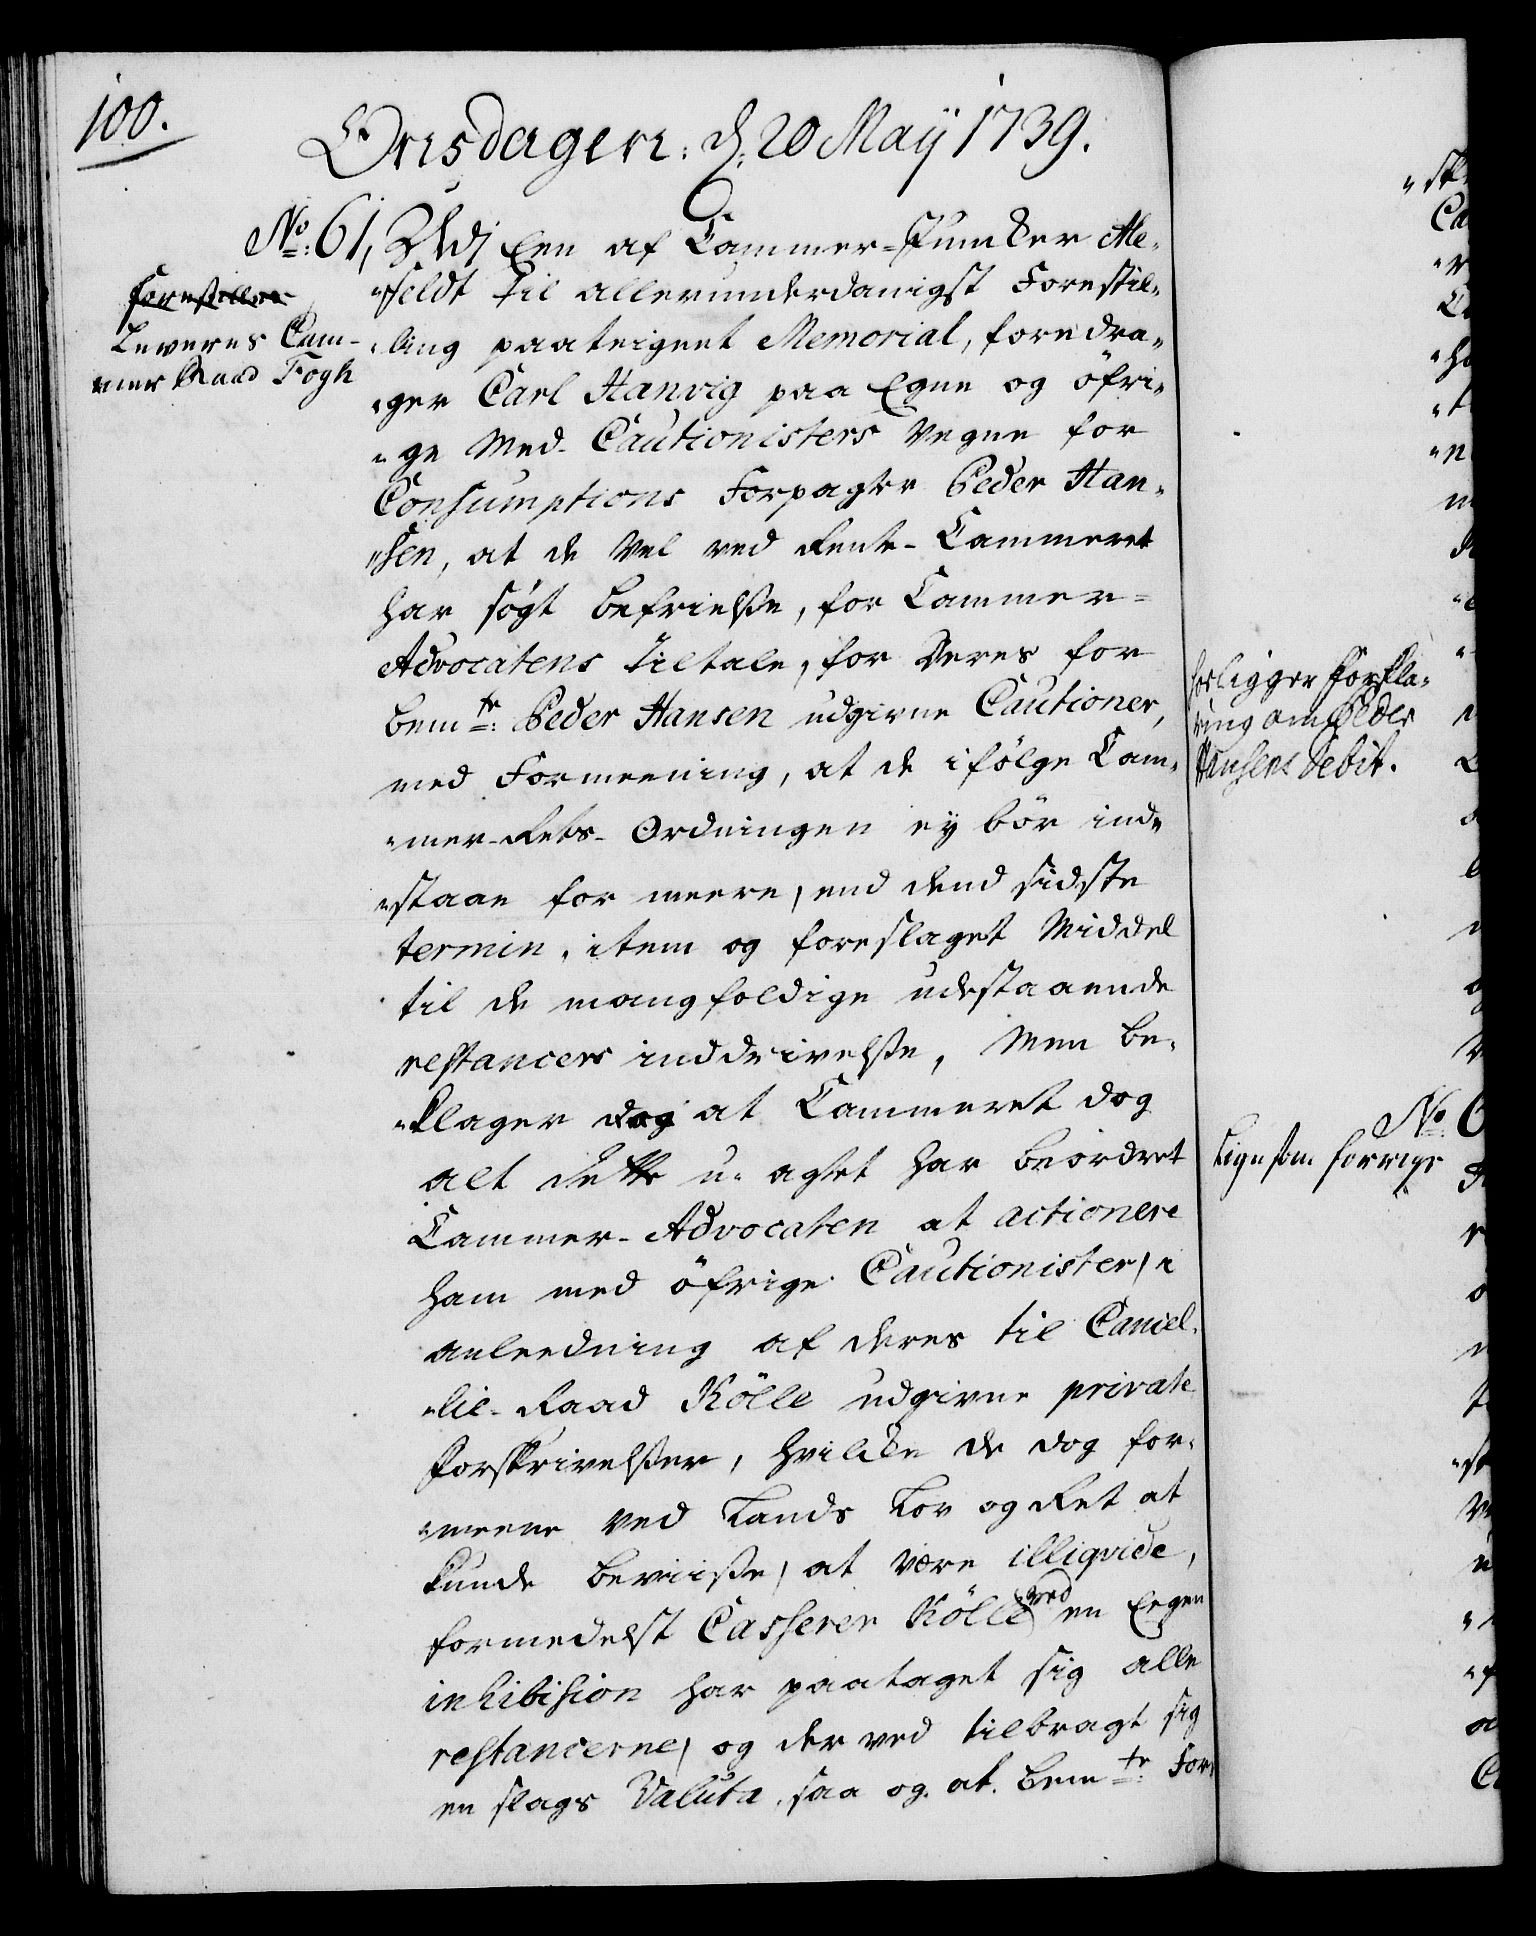 100.
Onsdagen: d: 20 May 1739.
No: 61, Udj Een af Cammer-Juncker Ale-
"feldt til allerunderdanigst Forestil-
"ling paateignet Memorial, foredra-
"ger Carl Hanvig paa Egne og öfri-
"ge Med-Cautionisters Vegne for
Consumptions Forpagter Peder Han-
"sen, at de vel ved Rente-Cammeret
har søgt befrielse, for Cammer-
Advocatens tiltale, for deres for
bem.te: Peder Hansen udgivne Cautioner,
med Formeening, at de ifölge Cam-
"mer-Rets-Ordningen ey bör ind-
"staae for meere, end dend sidste
termin, item og foreslaget Middel
til de mangfoldige udestaaende
restancers inddrivelse, Men be-
"klager dog at Cammeret dog
alt dette u-agtet har beordret
Cammer-Advocaten at actionere
ham med öfrige Cautionister, i
anleedning af deres til Cancel-
"lie-Raad Kölle udgivne private
forskrivelser, hvilcke de dog for-
"meene ved Lands Lov og Ret at
kunde beviise, at være illiqvide,
formedelst Casserer Kölle ved en Egen
inhibition har paataget sig alle
restancerne, og der ved tilbragt sig
en slags Valuta, saa og at bem.te For-
forestilles
Leveres Cam-
mer Raad Fogh
her ligger Forkla-
ring om Peder
Hansens debit.
No: 6
Lige som forrige